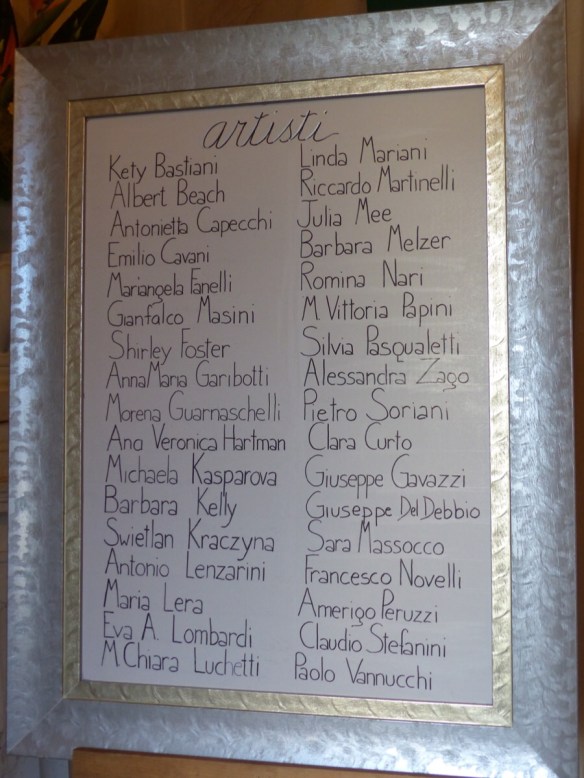 artisti
Kety Bastiani
Albert Beach
Antonietta Capecchi
Emilio Cavani
Mariangela Fanelli
Gianfalco Masini
Shirley Foster
AnnaMaria Garibotti
Morena Guarnaschelli
Ana Veronica Hartman
Michaela Kasparova
Barbara Kelly
Swietlan Kraczyna
Antonio Lenzarini
Maria Lera
Eva A. Lombardi
M.Chiara Luchetti
Linda Mariani
Riccardo Martinelli
Julia Mee
Barbara Melzer
Romina Nari
M.Vittoria Papini
Silvia Pasqualetti
Alessandra Zago
Pietro Soriani
Clara Curto
Giuseppe Gavazzi
Giuseppe Del Debbio
Sara Massocco
Francesco Novelli
Amerigo Peruzzi
Claudio Stefanini
Paolo Vannucchi